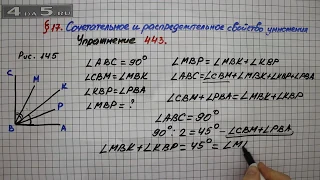 4 ДА 5.RU
§17. Сочетательное и распределительное свойство умножения
Упражнение 443.
Рис. 145
∠ABC=90°
∠CBM=∠MBK
∠KBP=∠PBA
∠MBP=?
∠MBP=∠MBK+∠KBP
∠ABC=∠CBM+∠MBK+∠KBP+∠PBA
∠CBM+∠PBA=∠MBK+∠KBP
∠ABC=90°
90°:2=45°-∠CBM+∠PBA,
∠MBK+∠KBP=45°=∠M
C
M
K
P
B
A